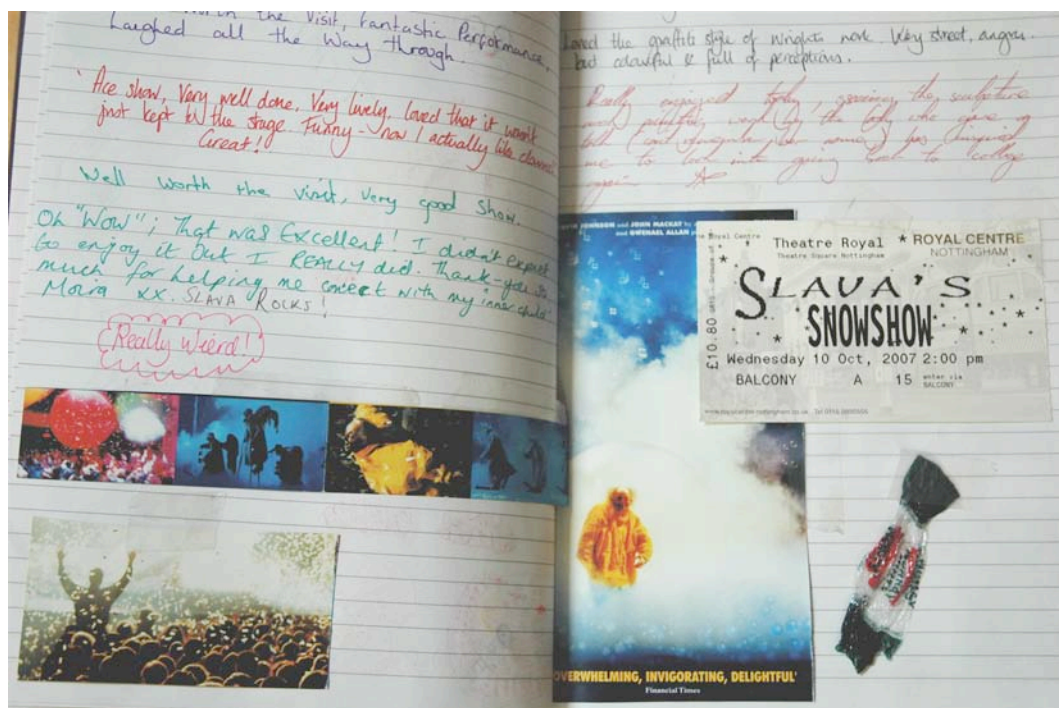 the Visit, Fantastic Performance,
Laughed all the Way through.
'Ace show, Very well done, Very lively, loved that it wasn't
just kept to the stage. Funny - now I actually like clowns
Great!
Well worth the visit, very good show.
Oh "Wow"; That was Excellent! I didn't expect
to enjoy it but I REALLY did. Thank-you so
much for helping me conect with my inner child
Moira xx. SLAVA ROCKS!
Really Wierd!
Loved the graffiti style of Wrights work. Very street, angry
but colourful & full of perceptions.
Really enjoyed today, seeing the sculpture
by the lady who gave us
talk has inspired
me to look into going back to college
again
JOHNSON and JOHN MACKAY by
and GWENAEL ALLAN
Royal Centre
Theatre Royal ROYAL CENTRE
Theatre Square Nottingham NOTTINGHAM
SLAVA'S
SNOWSHOW
£10.80
Wednesday 10 Oct, 2007 2:00 pm
BALCONY A 15 enter via
BALCONY
OVERWHELMING, INVIGORATING, DELIGHTFUL'
Financial Times